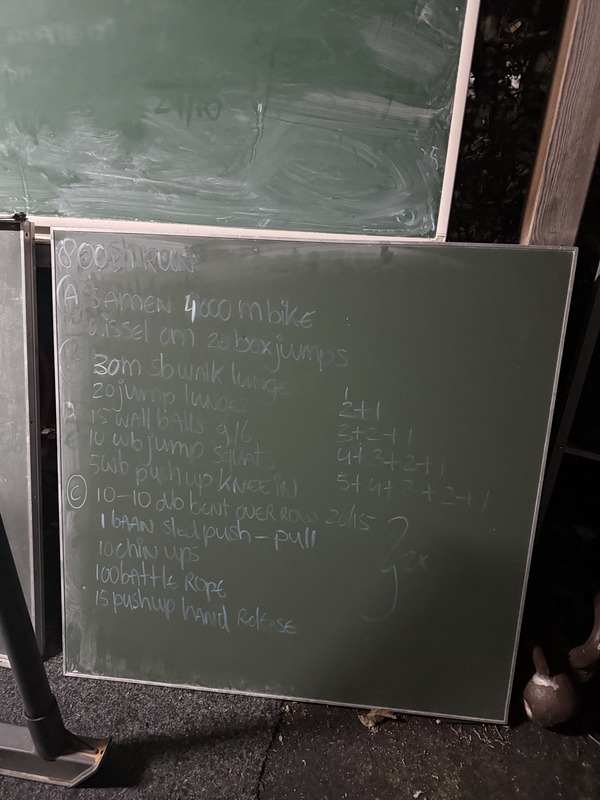 21/10
800m RUN
A SAMEN 4000 m bike
wissel om 20 box jumps
B 30m sb walk lunge
20 jump lunges
15 wall balls 9/6
10 wb jump squats
5 wb push up KNEE IN
1
2+1
3+2+1
4+3+2+1
5+4+3+2+1
C 10-10 db bent over row 20/15
1 BAAN sled push-pull
10 chin ups
100 battle ROPE
15 pushup hand Release
2x